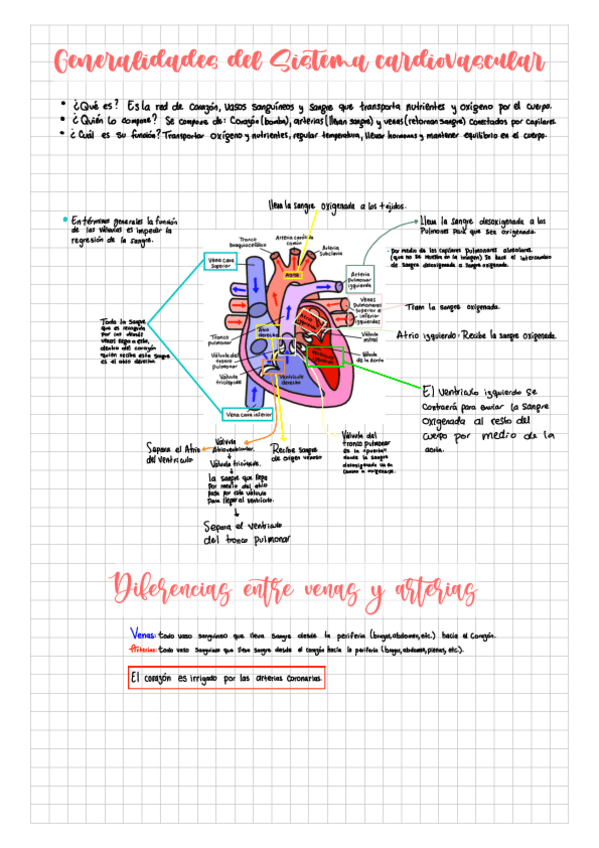 Generalidades del Sistema cardiovascular
• ¿Qué es? Es la red de corazón, vasos sanguíneos y sangre que transporta nutrientes y oxígeno por el cuerpo.
• ¿Quién lo compone? Se compone de: Corazón (bomba), arterias (llevan sangre) y venas (retornan sangre) conectados por capilares.
• ¿Cuál es su función? Transportar oxígeno y nutrientes, regular temperatura, llevar hormonas y mantener equilibrio en el cuerpo.
lleva la sangre oxigenada a los tejidos.
• En términos generales la función
de las válvulas es impedir la
regresión de la sangre.
Tronco
braquiocefálico
Arteria carótida
común
Arteria
Subclavia
lleva la sangre desoxigenada a los
Pulmones para que sea oxigenada.
· por medio de los capilares pulmonares alveolares
(que no se muestra en la imagen) se hace el intercambio
de sangre desoxigenada a sangre oxigenada.
Vena cava
Superior
Aorta
Arteria
Pulmonar
izquierda
Venas
Pulmonares
Superior e
inferior
izquierdas
Traen la sangre oxigenada.
Toda la sangre
que es recogida
por las demás
venas llega a esta,
dentro del corazón
quién recibe esta sangre
es el atrio derecho.
Atrio
derecho
Atrio
izquierdo
Tronco
pulmonar
Válvula
mitral
Atrio izquierdo: Recibe la sangre oxigenada.
Válvula del
tronco
pulmonar
Válvula
tricúspide
Ventrículo
derecho
Ventrículo
izquierdo
Válvula
de la aorta
Vena cava inferior
El ventrículo izquierdo se
contraerá para enviar la sangre
oxigenada al resto del
cuerpo por medio de la
aorta.
Separa el Atrio
del ventrículo
Válvula
Atrioventricular.
Válvula tricúspide.
la sangre que llega
por medio del atrio
pasa por esta válvula
para llegar al ventrículo.
Separa el ventrículo
del tronco pulmonar
Recibe sangre
de origen venoso
Válvula del
tronco pulmonar
es la "puerta"
donde la sangre
desoxigenada va en
camino a oxigenarse.
Diferencias entre venas y arterias
Venas: todo vaso sanguíneo que lleva sangre desde la periferia (brazos, abdomen, etc.) hacia el corazón.
Arterias: todo vaso sanguíneo que lleve sangre desde el corazón hacia la periferia (brazos, abdomen, piernas, etc.).
El corazón es irrigado por las arterias coronarias.